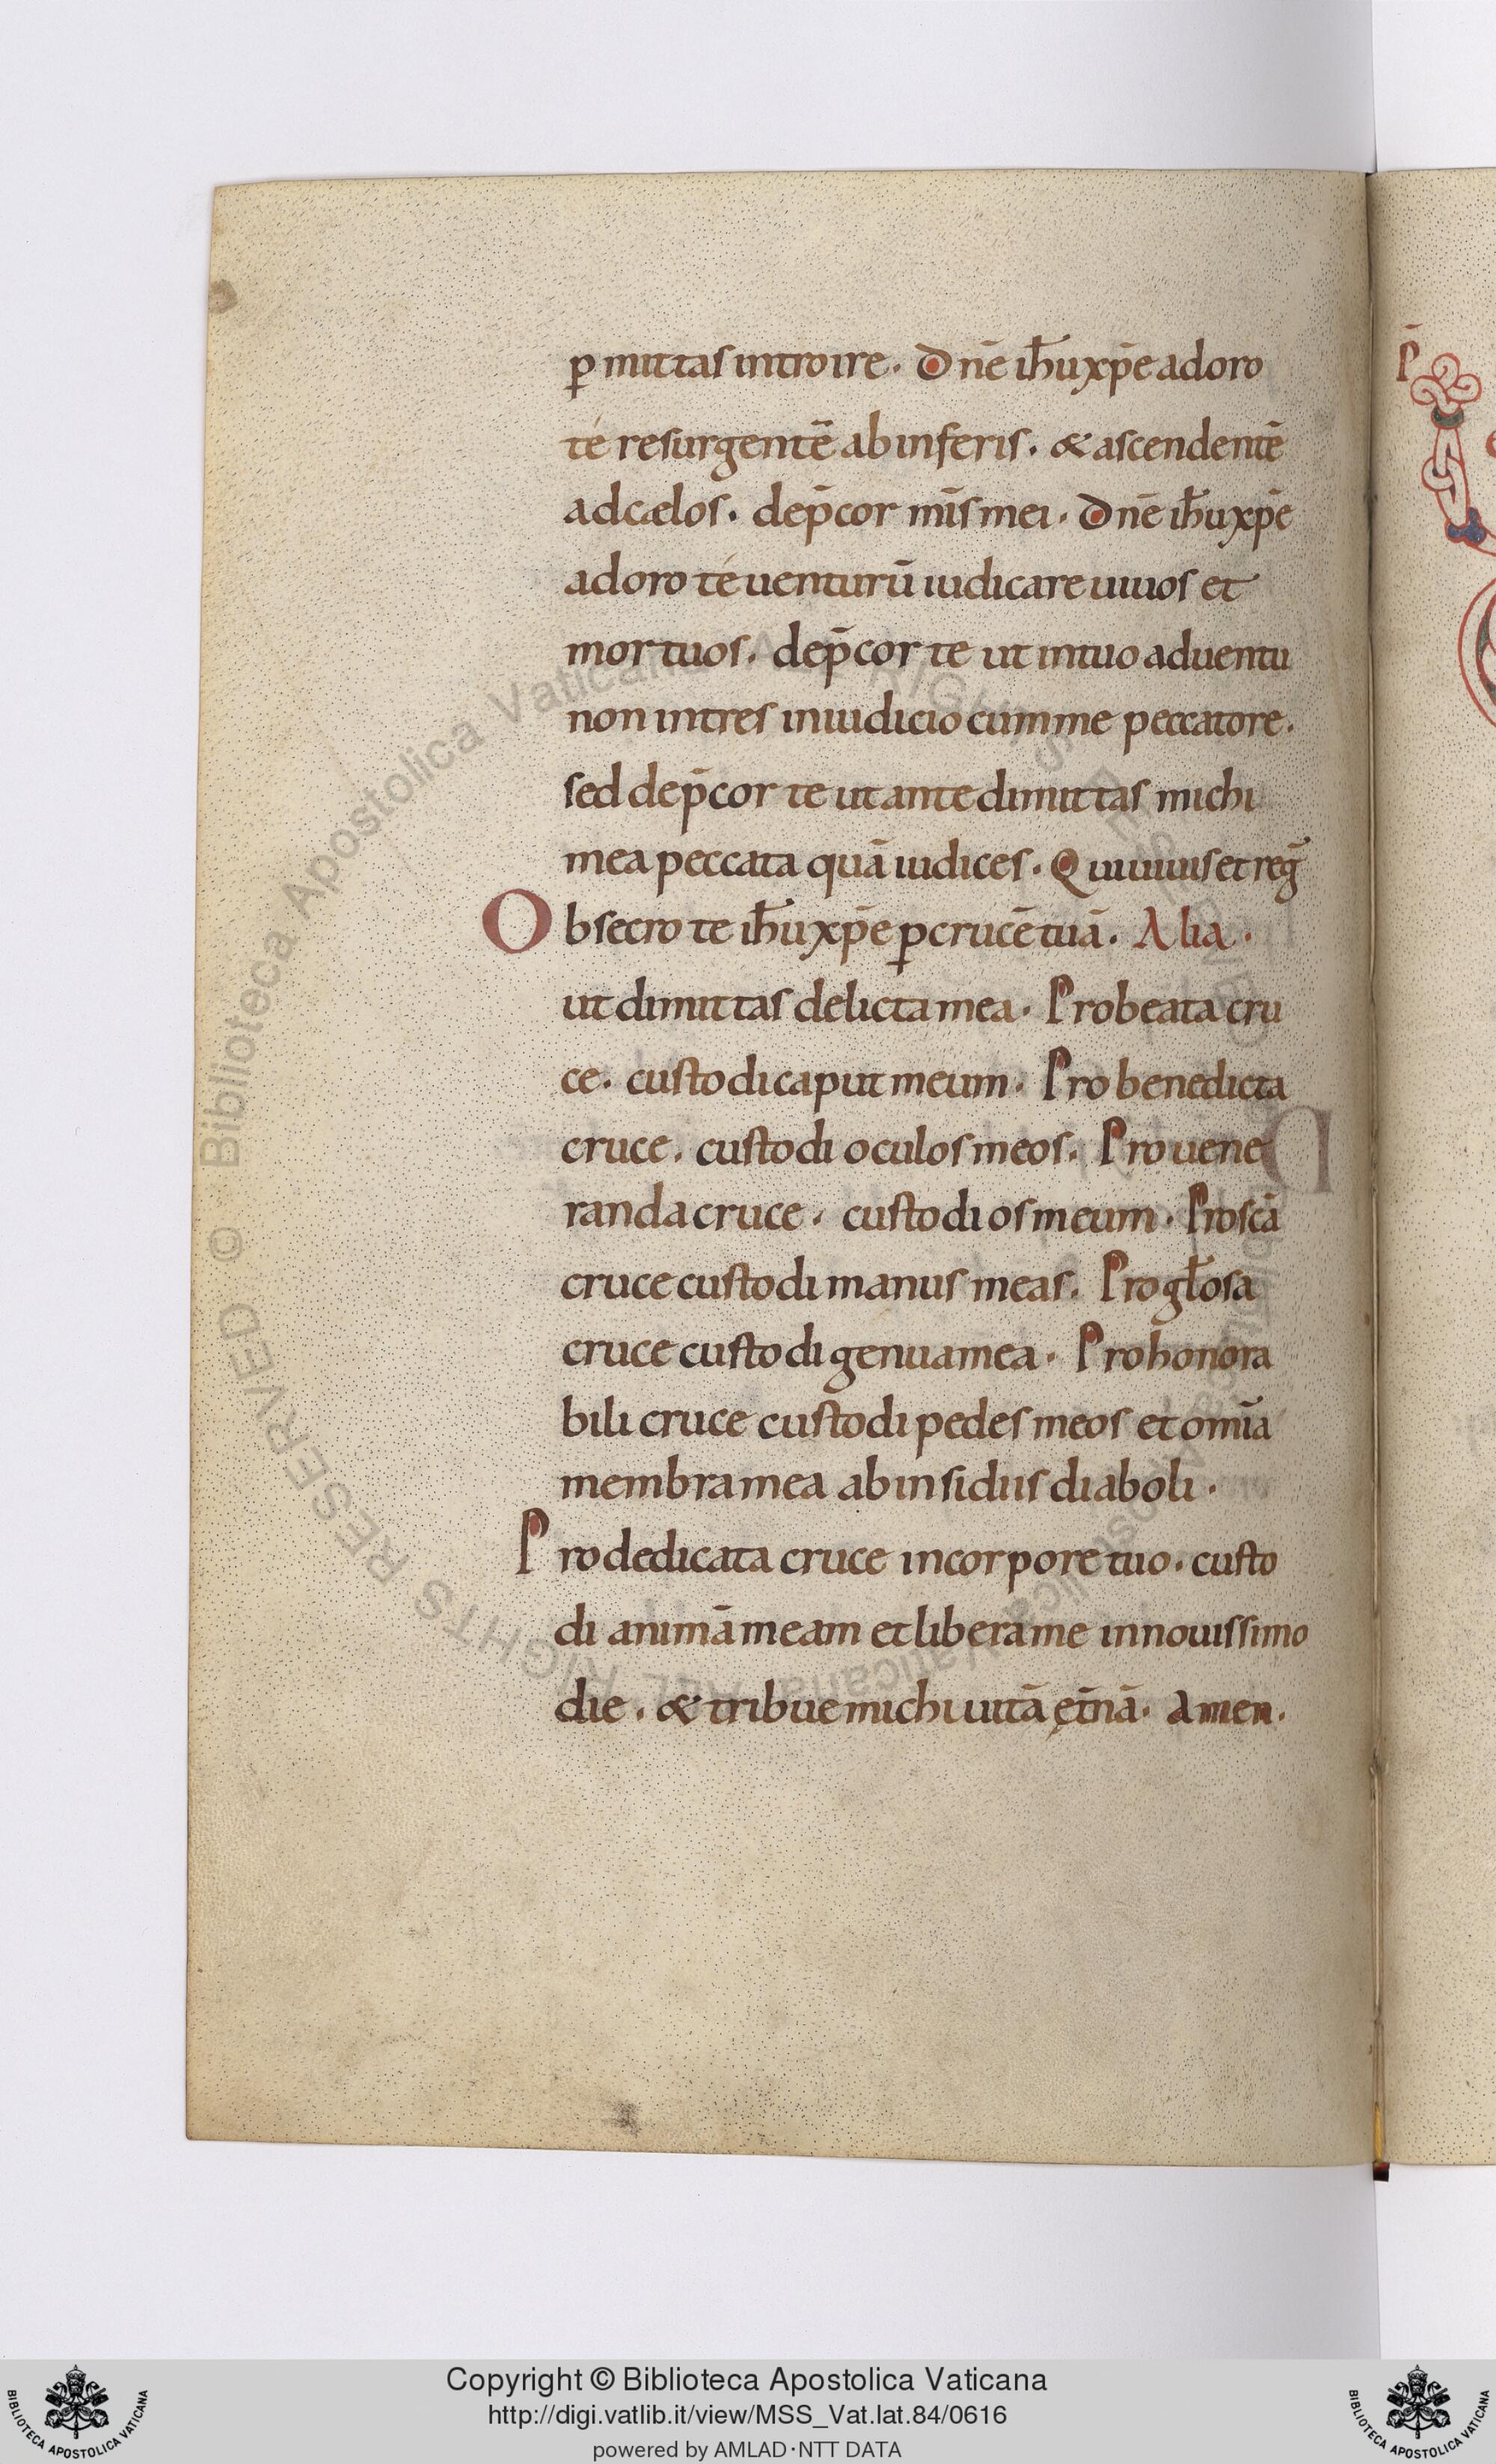 ꝑmittas introire. Dn̄e ih̄u xp̄e adoro
té resurgentē ab inferis. & ascendentē
ad cælos. dep̄cor mīs mei. Dn̄e ih̄u xp̄e
adoro té uenturū iudicare uiuos et
mortuos. dep̄cor te ut in tuo aduentu
non intres in iudicio cum me peccatore.
sed dep̄cor te ut ante dimittas michi
mea peccata quā iudices. Qui uiuis et reḡ
Obsecro te ih̄u xp̄e ꝑ crucē tuā. Alia.
ut dimittas delicta mea. Pro beata cru
ce. custodi caput meum. Pro benedicta
cruce. custodi oculos meos. Pro uene
randa cruce. custodi os meum. Pro scā
cruce custodi manus meas. Pro gl̄osa
cruce custodi genua mea. Pro honora
bili cruce custodi pedes meos et om̄ia
membra mea ab insidiis diaboli.
Pro dedicata cruce in corpore tuo. custo
di animā meam et libera me in nouissimo
die. & tribue michi uitā ęt̄nā. Amen.
Copyright © Biblioteca Apostolica Vaticana
http://digi.vatlib.it/view/MSS_Vat.lat.84/0616
powered by AMLAD·NTT DATA
BIBLIOTECA APOSTOLICA VATICANA
BIBLIOTECA APOSTOLICA VATICANA